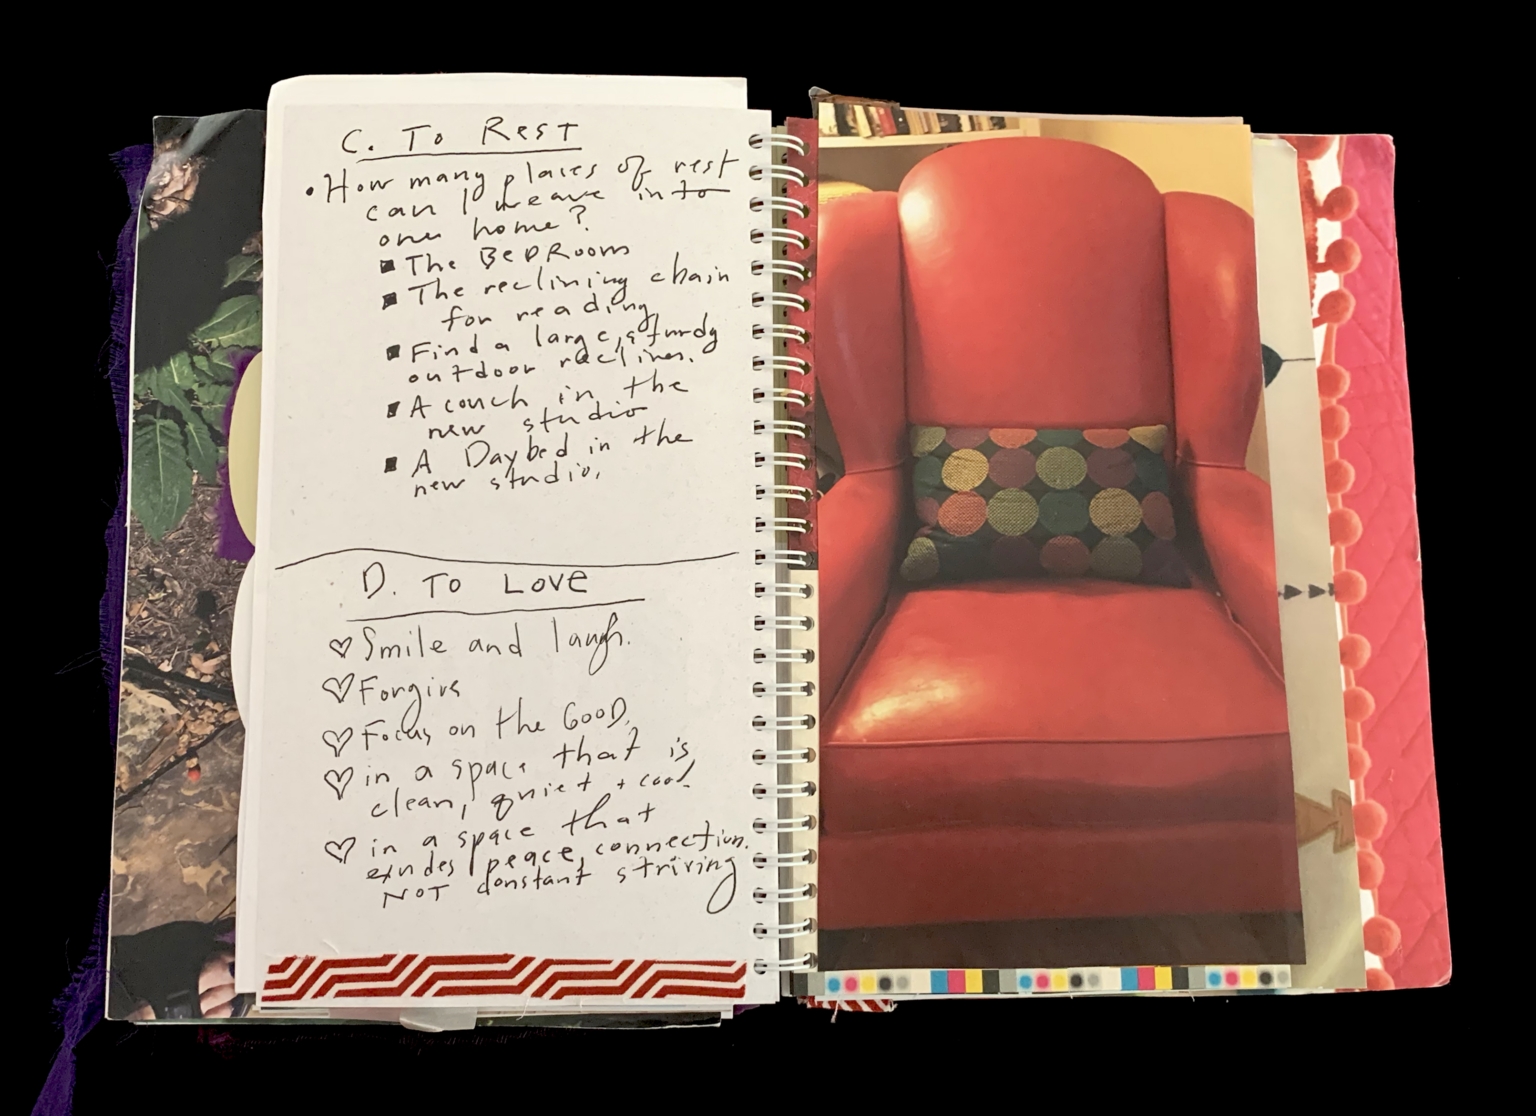 C. To Rest
• How many places of rest
can I weave into
our home?
▪ The BedRoom
▪ The reclining chair
for reading
▪ Find a large, sturdy
outdoor recliner.
▪ A couch in the
new studio
▪ A Daybed in the
new studio.
D. To Love
♡ Smile and laugh.
♡ Forgive
♡ Focus on the GOOD.
♡ in a space that is
clean, quiet + cool
♡ in a space that
exudes peace, connection.
NOT constant striving